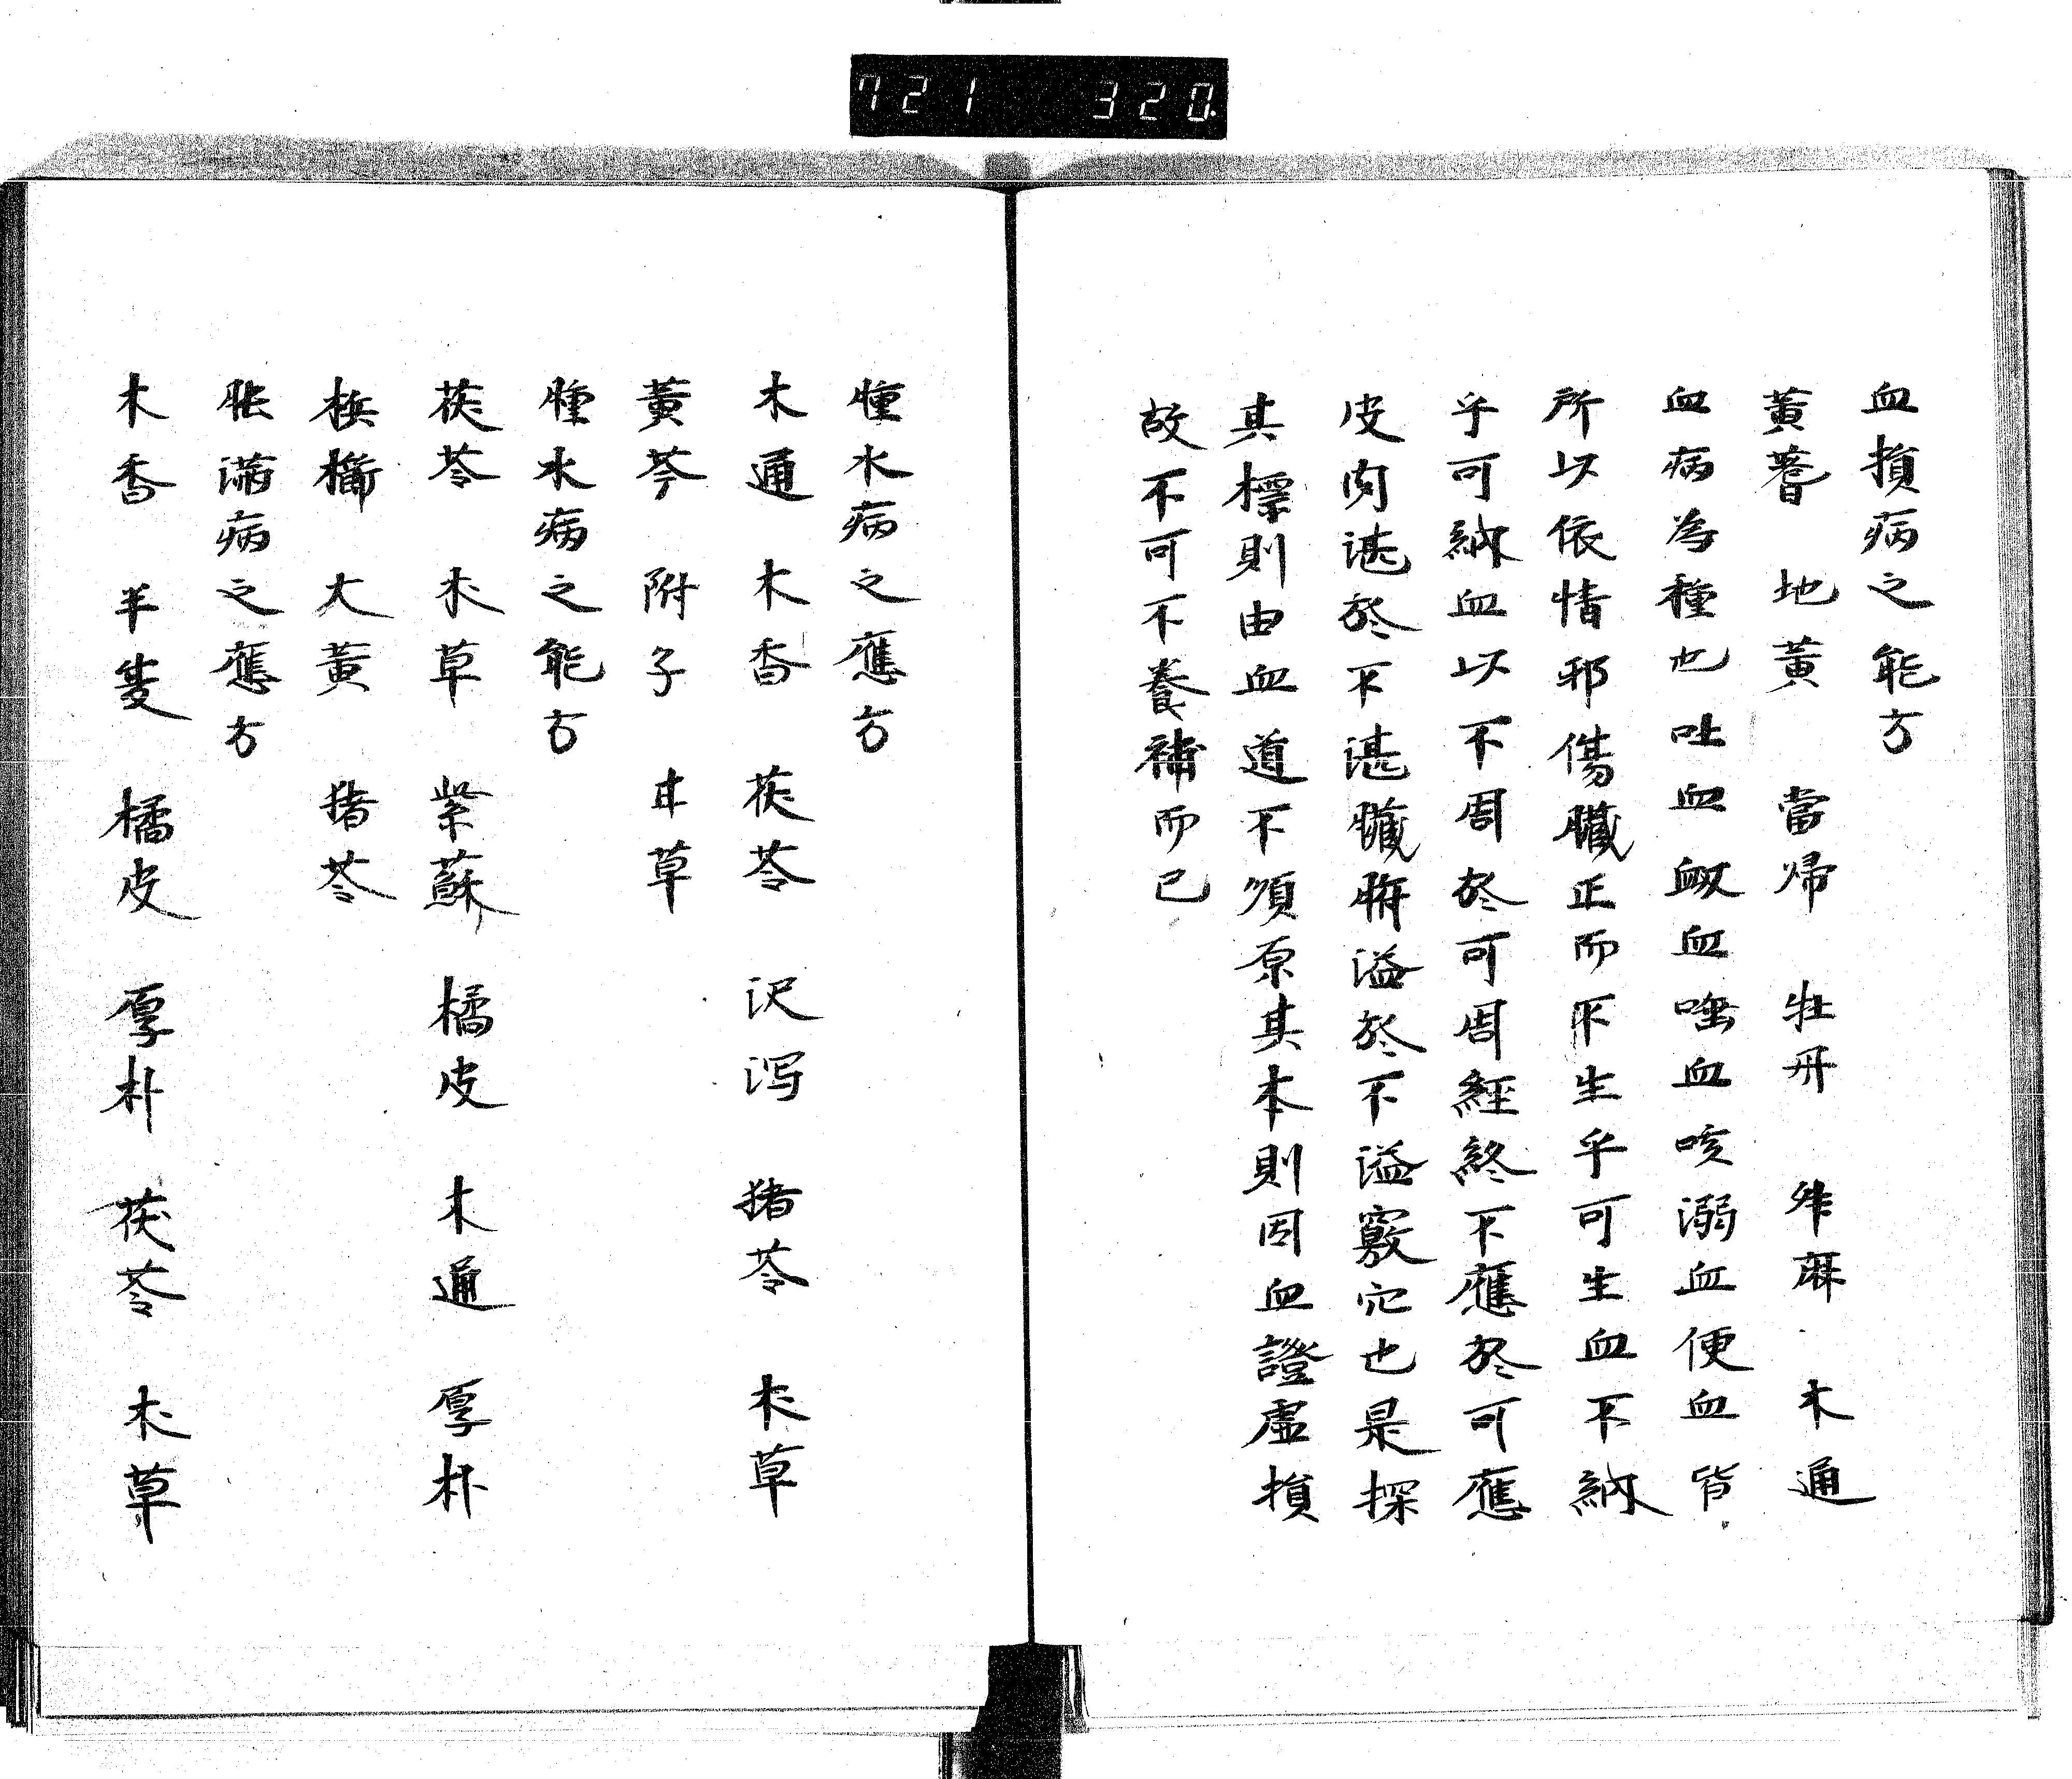 721 320
血損病之能方
黃蓍 地黃 當帰 牡丹 升麻 木通
血病為種也吐血衂血嗌血咳溺血便血皆
所以依情邪傷臟正而不生乎可生血不納
乎可納血以不周於可周經終不應於可應
皮肉湛於不湛臟腑溢於不溢竅穴也是探
其標則由血道不順原其本則因血證虛損
故不可不養補而已
腫水病之應方
木通 木香 茯苓 沢泻 猪苓 朮草
黃芩 附子 甘草
腫水病之能方
茯苓 朮草 紫蘇 橘皮 木通 厚朴
檳榔 大黃 猪苓
脹滿病之應方
木香 半夏 橘皮 厚朴 茯苓 朮草